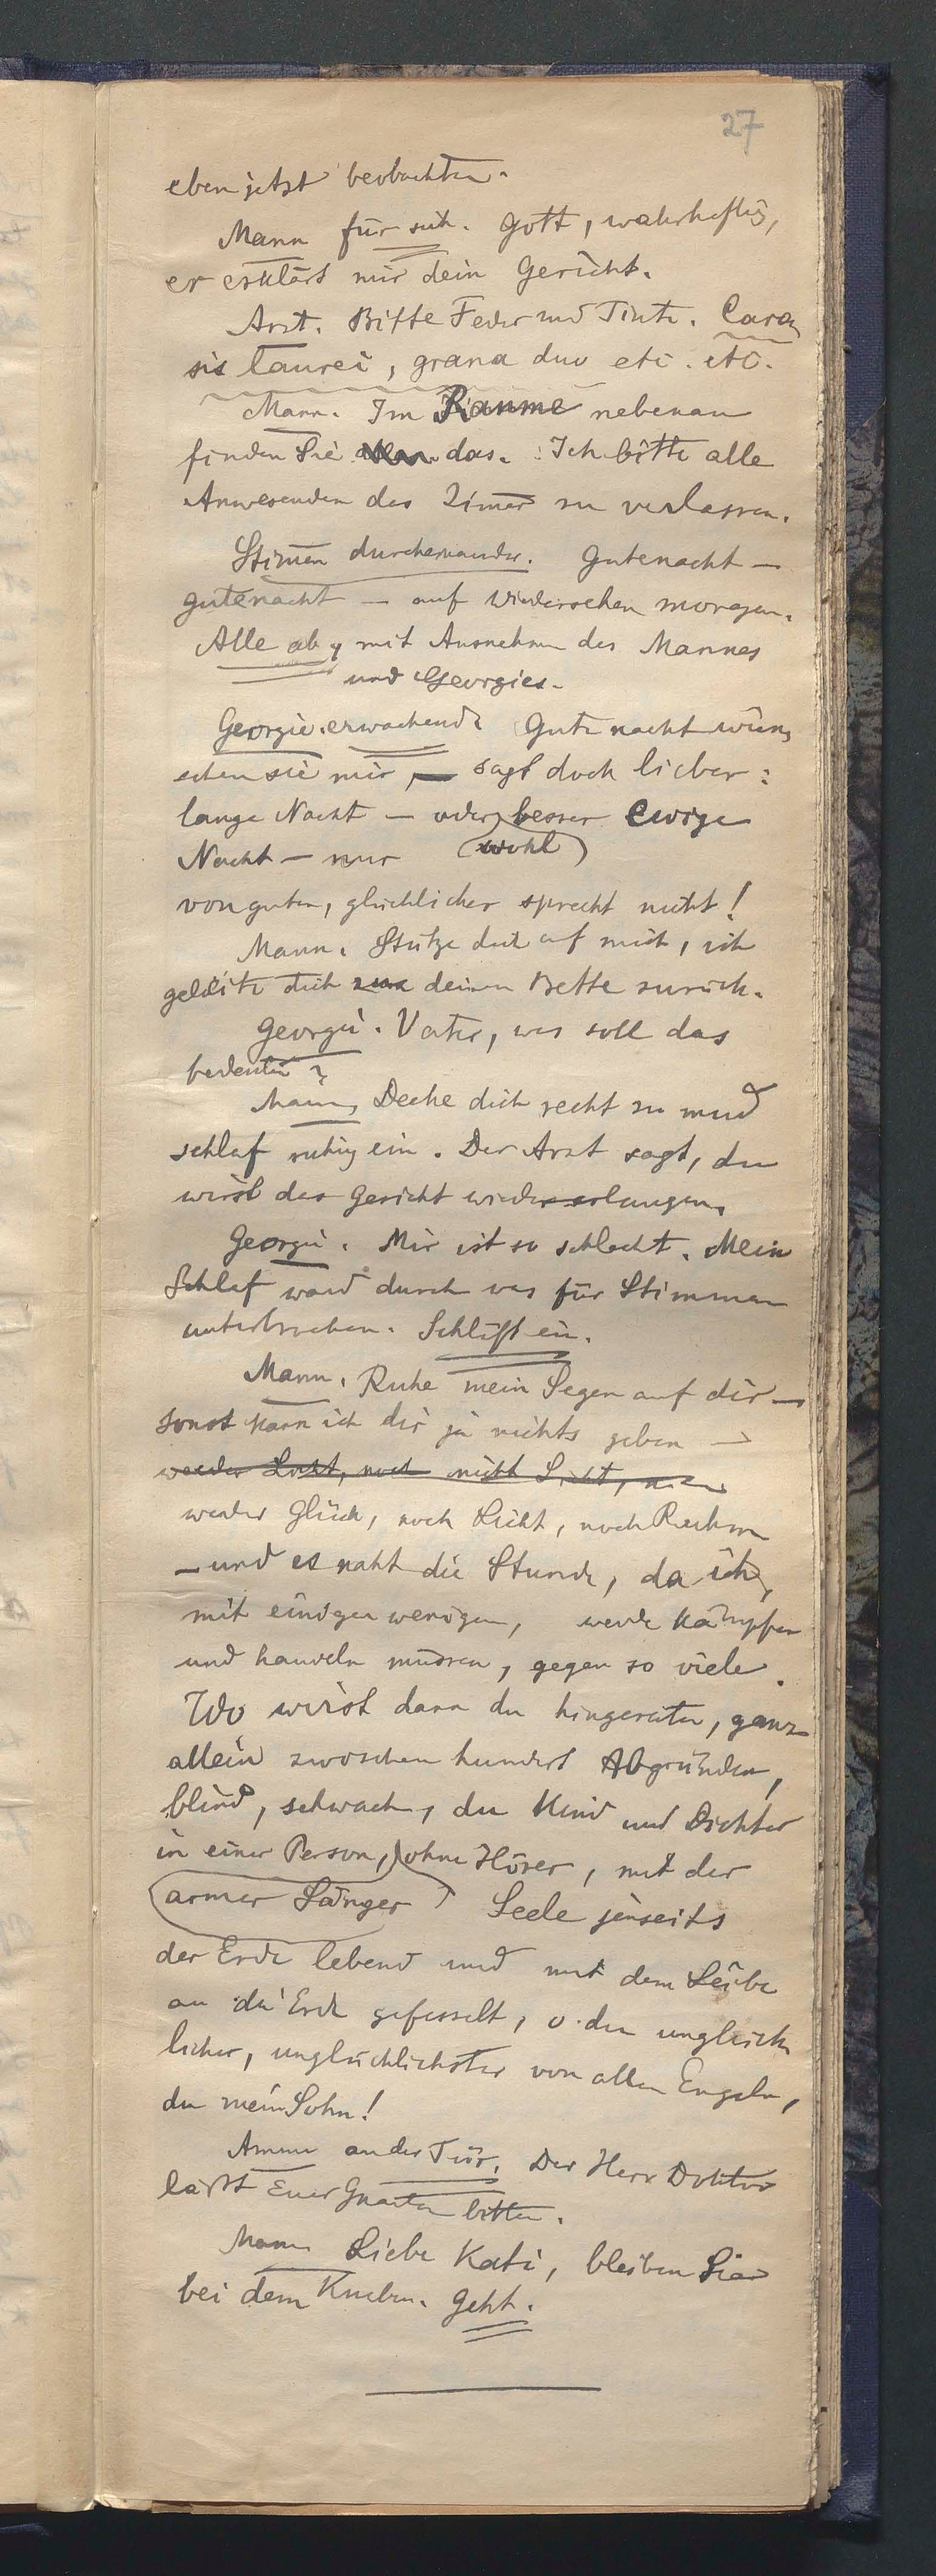 27
eben jetzt beobachten.
Mann für sich. Gott, wahrhaftig,
er erklärt mir dein Gericht.
Arzt. Bitte Feder und Tinte.
laurei, grana duo etc. etc.
Mann. Im Raume nebenan
finden Sie das. Ich bitte alle
Anwesenden das Zimer zu verlassen.
Stimen durcheinander. Gutenacht —
gutenacht — auf Wiedersehen morgen.
Alle ab, mit Ausnahme des Mannes
und Georgies.
Georgie erwachend. Gute nacht wün
schen sie mir, — sagt doch lieber:
lange Nacht — oder besser ewige
Nacht — nur (wohl)
von guter, glücklicher sprecht nicht!
Mann. Stütze dich auf mich, ich
geleite dich deinem Bette zurück.
Georgie. Vater, was soll das
bedeuten?
Mann, Decke dich recht zu und
schlaf ruhig ein. Der Arzt sagt, du
wirst das Gesicht wiedererlangen.
Georgie. Mir ist so schlecht. Mein
Schlaf ward durch was für Stimmen
unterbrochen. Schläft ein.
Mann. Ruhe mein Segen auf dir —
sonst kann ich dir ja nichts geben —
weder Lust, noch nicht
weder Glück, noch Licht, noch Ruhm
— und es naht die Stunde, da ich,
mit einigen wenigen, werde kämpfen
und handeln müssen, gegen so viele.
Wo wirst dann du hingeraten, ganz
allein zwischen hundert Abgründen,
blind, schwach, du Kind und Dichter
in einer Person, ohne Hörer, mit der
(armer Sänger) Seele jenseits
der Erde lebend und mit dem Leibe
an die Erde gefesselt, o du unglück
licher, unglücklichster von allen Engeln,
du mein Sohn!
Amme an der Tür. Der Herr Doktor
läßt Euer Gnaden bitten.
Mann Liebe Kati, bleiben Sie
bei dem Knaben. Geht.